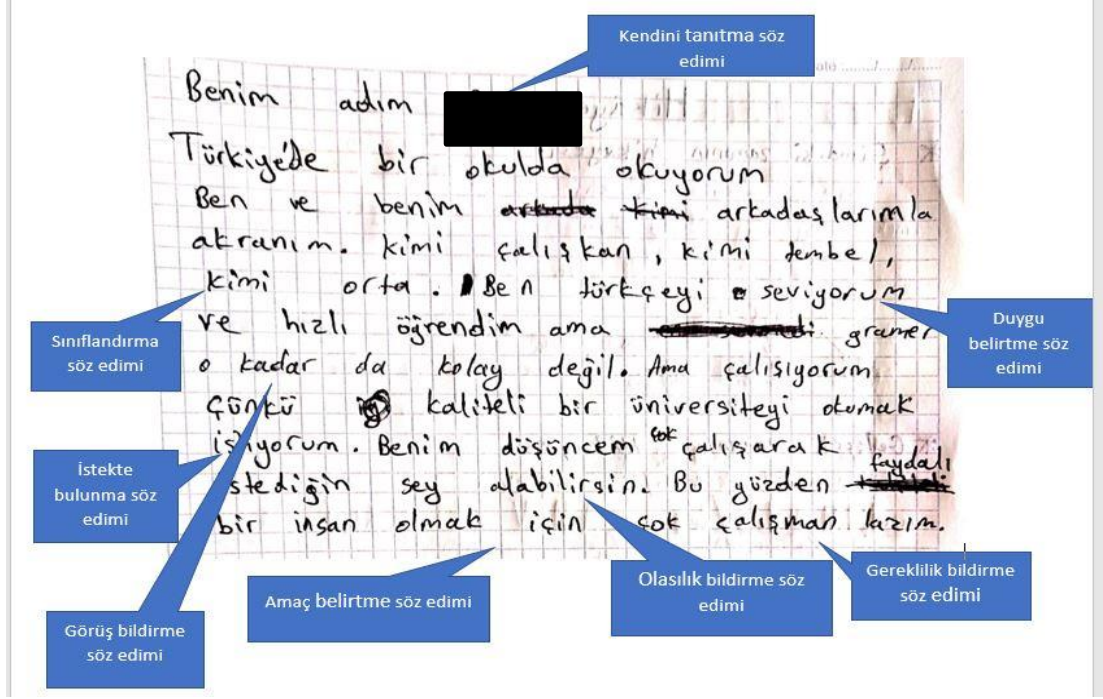 Kendini tanıtma söz
edimi
Benim adım
Türkiye'de bir okulda okuyorum
Ben ve benim arkadaşlarımla
akranım. kimi çalışkan, kimi tembel,
kimi orta. Ben türkçeyi seviyorum
ve hızlı öğrendim ama gramer
o kadar da kolay değil. Ama çalışıyorum
çünkü kaliteli bir üniversiteyi okumak
istiyorum. Benim düşüncem çok çalışarak
istediğin sey alabilirsin. Bu yüzden faydalı
bir insan olmak için çok çalışman lazım.
Sınıflandırma
söz edimi
Duygu
belirtme söz
edimi
İstekte
bulunma söz
edimi
Görüş bildirme
söz edimi
Amaç belirtme söz edimi
Olasılık bildirme söz
edimi
Gereklilik bildirme
söz edimi